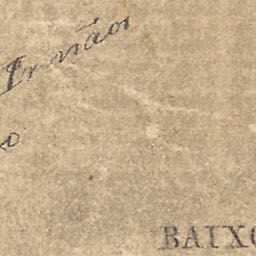 Irmãos
o
BAIXO